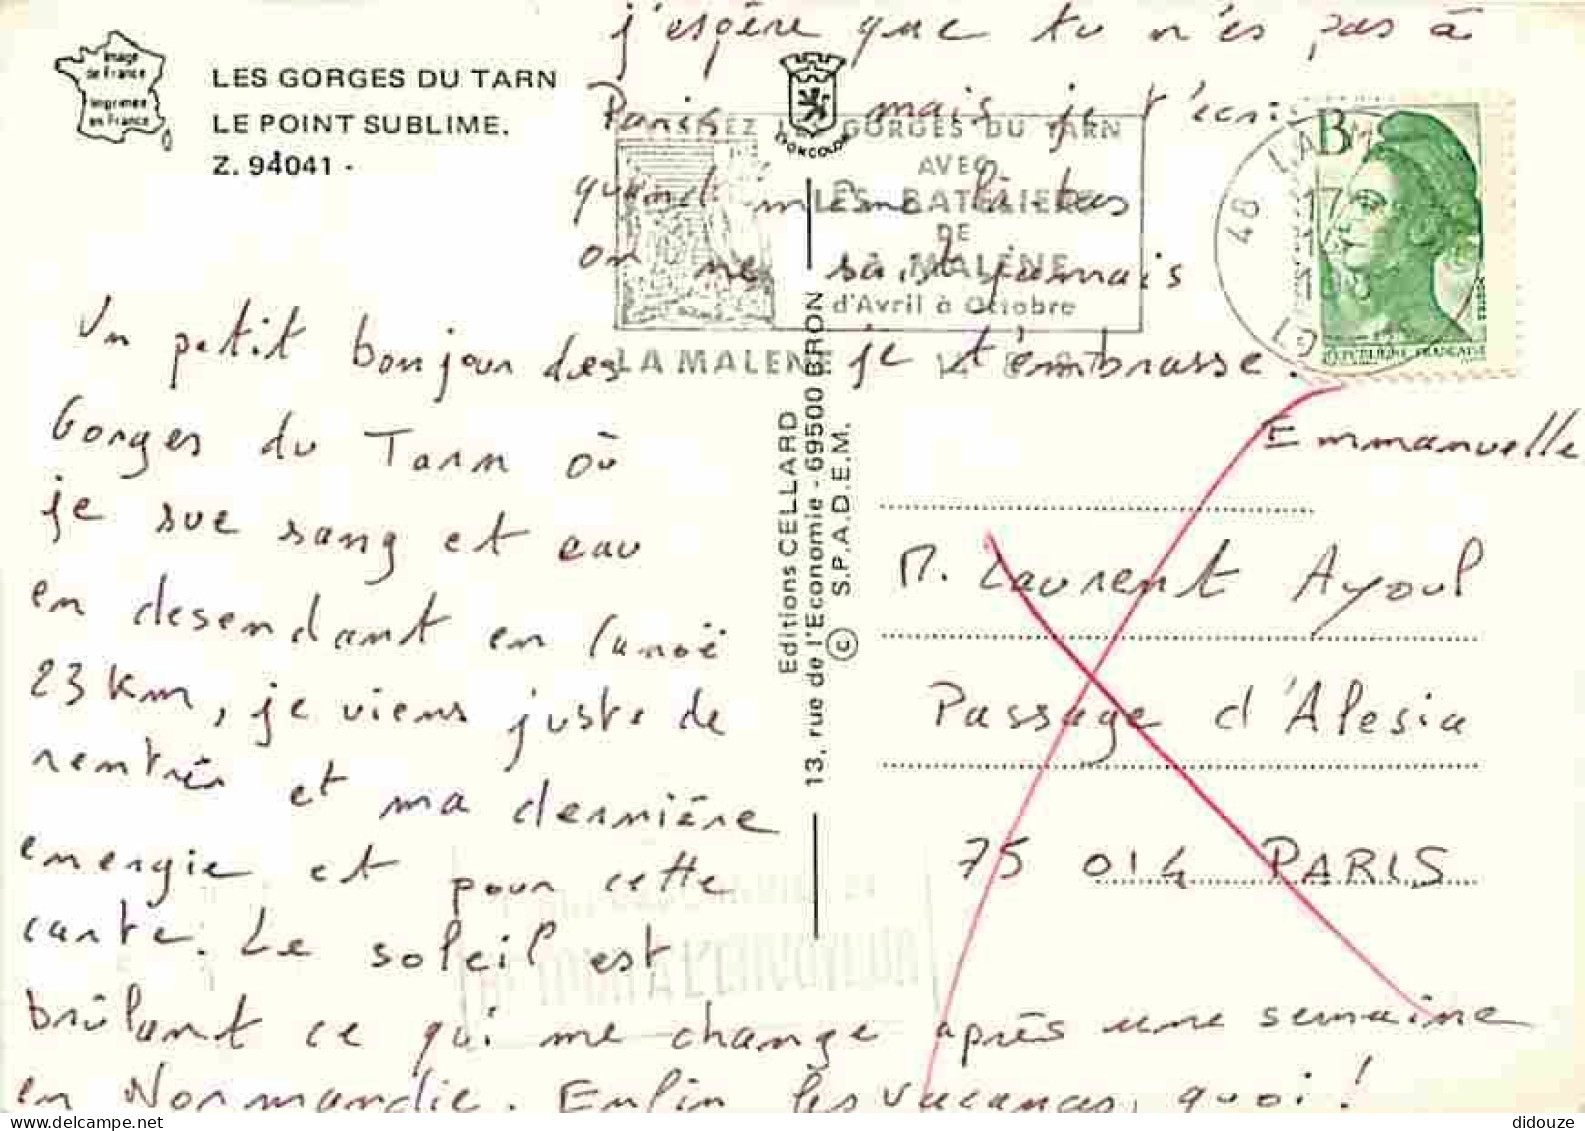 Image
de France
Imprimée
en France
LES GORGES DU TARN
LE POINT SUBLIME.
Z. 94041 -
LYONCOLOR
Un petit bonjour des
Gorges du Tarn où
je sue sang et eau
en desendant en canoë
23 km, je viens juste de
rentrér et ma dernière
energie et pour cette
carte. Le soleil est
brûlant ce qui me change après une semaine
en Normandie. Enfin les vacances, quoi !
j'espère que tu n'es pas à
Paris mais je t'écris
quand même là-bas
on ne sait jamais
je t'embrasse.
Emmanuelle
GORGES DU TARN
AVEC
LES BATELIERS
DE
LA MALÈNE
d'Avril à Octobre
LA MALENE
48 LA
17
B
POSTES
REPUBLIQUE FRANÇAISE
Editions CELLARD
13, rue de l'Economie - 69500 BRON
© S.P.A.D.E.M.
M. Laurent Ayoul
Passage d'Alesia
75 014 PARIS
A L'ENVOYEUR
didouze